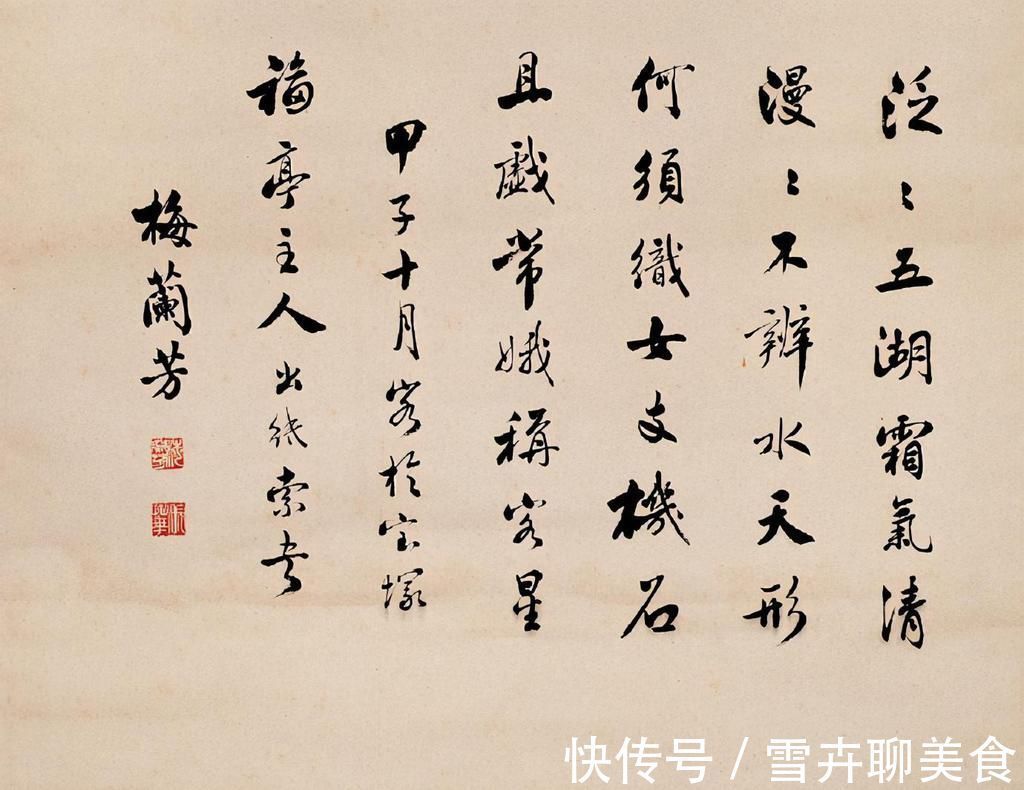 泛〻五湖霜氣清
漫〻不辨水天形
何須織女支機石
且戲常娥稱客星
甲子十月客於宝塚
福亭主人出紙索書
梅蘭芳
快传号/雪卉聊美食